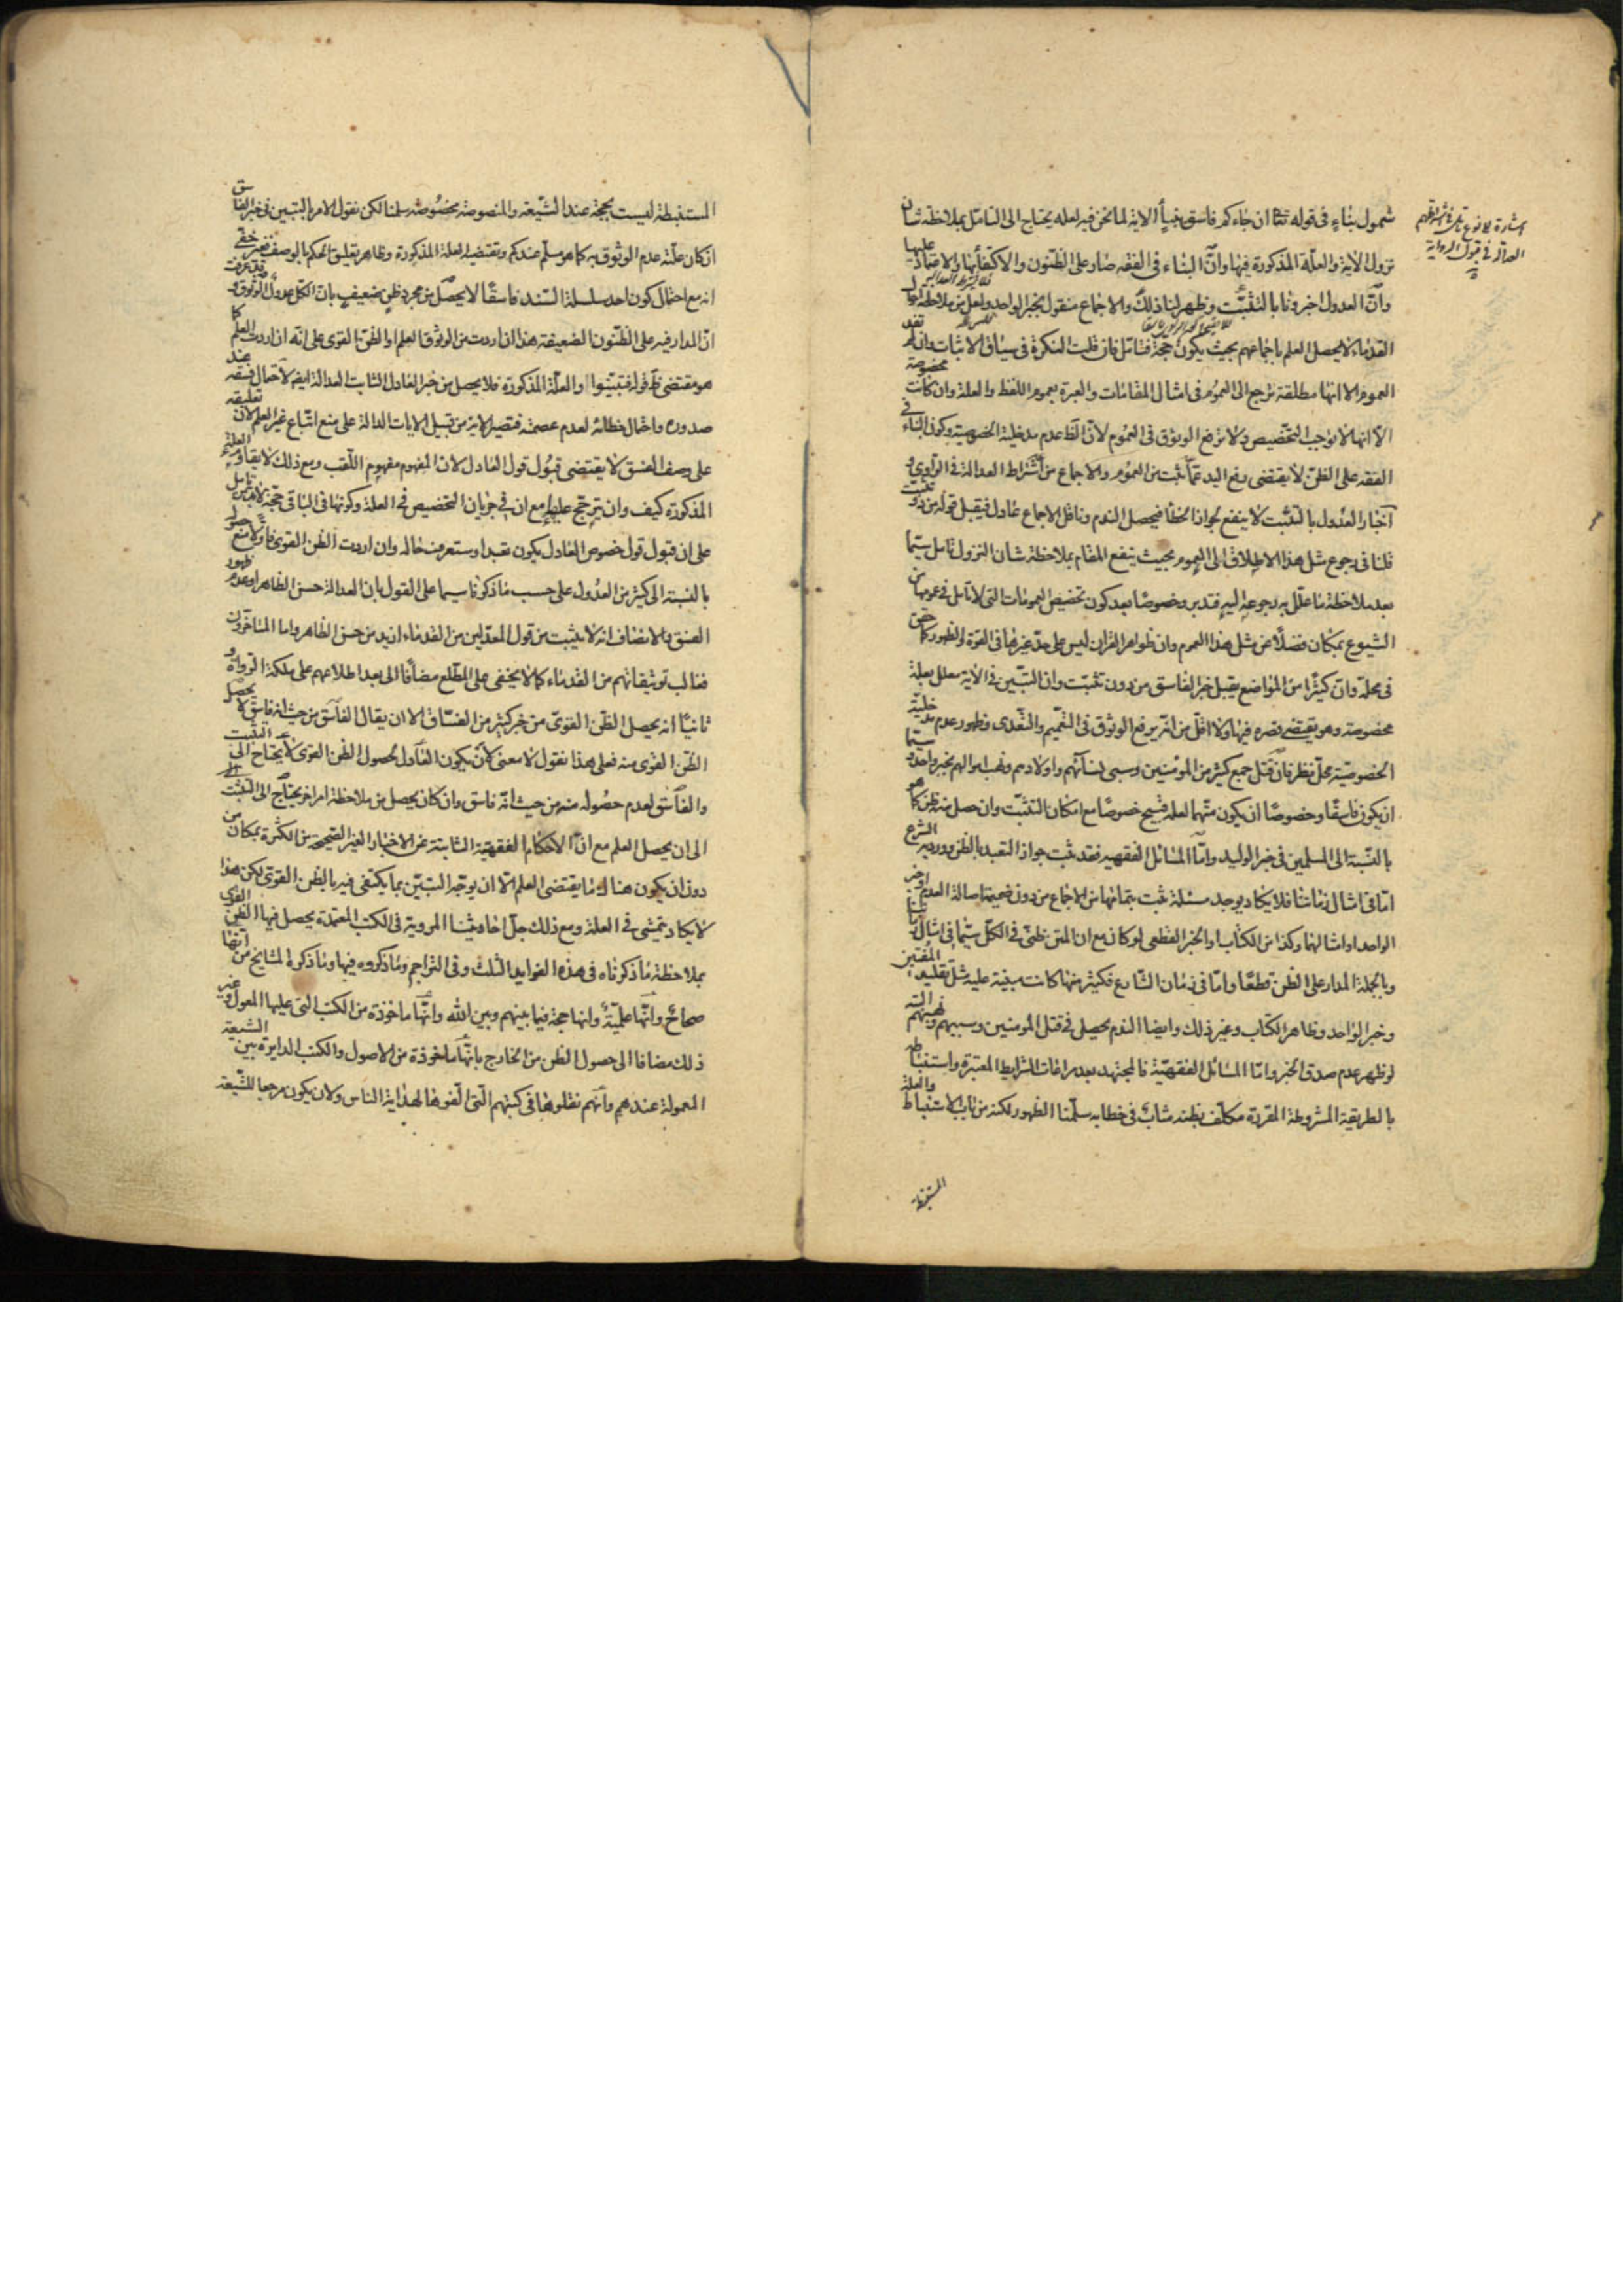 شمول بناء في قوله تعا ان جاءكم فاسق بنبأ الاية لما نحن فيه لعله يحتاج الى التامل بملاحظة شان
نزول الاية والعلة المذكورة فيها وان البناء في الفقه صار على الظنون والاكتفاء بها والاعتماد عليها
وان العدول اخرونا بالتثبت وظهر لنا ذلك والاجماع منقول بخبر الواحد ولعل من ملاحظة احوال
القدماء لا يحصل العلم باجماعهم بحيث يكون حجة فتامل فان قلت النكرة في سياق الاثبات وان لم تفد
العموم الا انها مطلقة ترجع الى العموم في امثال المقامات والعبرة بعموم اللفظ والعلة وان كانت مخصوصة
الا انها لا توجب التخصيص ولا ترفع الوثوق في العموم لان الظ عدم مدخلية الخصوصية وكون البناء في
الفقه على الظن لا يقتضي رفع اليد عما ثبت من العموم والاجماع من اشتراط العدالة في الراوي و
اخبار العدول بالتثبت لا ينفع لجواز الخطأ فيحصل الندم وناقل الاجماع عادل فيقبل قوله من دون تثبت
قلنا في رجوع مثل هذا الاطلاق الى العموم بحيث ينفع المقام بملاحظة شان النزول تامل سيما
بعد ملاحظة ما علل به رجوعه اليه فتدبر وخصوصا بعد كون تخصيص العمومات التي لا تامل في عمومها من
الشيوع بمكان فضلا عن مثل هذا العموم وان ظواهر القران ليس على حد غيرها في القوة والظهور كما حقق
في محله وان كثيرا من المواضع يقبل خبر الفاسق من دون تثبت وان التبين في الاية معلل بعلة
مخصوصة وهو يقتضي قصره فيها ولا اقل من انه يرفع الوثوق في التعميم والتعدي وظهور عدم مدخلية
الخصوصية محل نظر فان قتل جمع كثير من المومنين وسبي نسائهم واولادهم ونهب اموالهم بخبر واحد سيما و
ان يكون فاسقا وخصوصا ان يكون متهما لعله قبيح خصوصا مع امكان التثبت وان حصل منه ظن كما هو
بالنسبة الى المسلمين في خبر الوليد واما المسائل الفقهية فقد ثبت جواز التعبد بالظن وورد به الشرع
اما في امثال زماننا فلا يكاد يوجد مسئلة ثبت بتمامها من الاجماع من دون ضميمة اصالة العدم او خبر
الواحد او امثالهما وكذا من الكتاب او الخبر القطعي لو كان مع ان المتن ظني في الكل سيما في امثال زماننا
وبالجملة المدار على الظن قطعا واما في زمان الشارع فكثير منها كانت مبنية عليه مثل تقليد المفتين
وخبر الواحد وظاهر الكتاب وغير ذلك وايضا الندم يحصل في قتل المومنين وسبيهم ونهبهم البتة
لو ظهر عدم صدق الخبر واما المسائل الفقهية فالمجتهد بعد مراعات الشرايط المعتبرة واستنباطه
بالطريقة المشروطة المقررة مكلف بظنه مثاب في خطائه سلمنا الظهور لكنه من باب الاستنباط والعلة
المستنبطة
المستنبطة ليست بحجة عند الشيعة والمنصوصة مخصوصة سلمنا لكن نقول الامر بالتبين في خبر الفاسق
ان كان علته عدم الوثوق به كما هو مسلم عندكم وتقتضيه العلة المذكورة وظاهر تعليق الحكم بالوصف فغير خفي
انه مع احتمال كون احد سلسلة السند فاسقا لا يحصل من مجرد ظن ضعيف بان الكل عدول الوثوق و
ان المدار فيه على الظنون الضعيفة هذا ان اردت من الوثوق العلم او الظن القوي على انه ان اردت العلم كما
هو مقتضى ظ قوله فتبينوا والعلة المذكورة فلا يحصل من خبر العادل الثابت العدالة ايضا لاحتمال فسقه عند
صدوره واحتمال خطائه لعدم عصمته فتصير الاية من قبيل الايات الدالة على منع اتباع غير العلم لان تعليقه
على وصف الفسق لا يقتضي قبول قول العادل لان المفهوم مفهوم اللقب ومع ذلك لا يقاوم العلة
المذكورة كيف وان يترجح عليها مع ان في جريان التخصيص في العلة وكونها في الباقي حجة لا بد من تامل
على ان قبول قول خصوص العادل يكون تعبدا وستعرف حاله وان اردت الظن القوي فاولا نمنع حصوله
بالنسبة الى كثير من العدول على حسب ما ذكرنا سيما على القول بان العدالة حسن الظاهر او عدم ظهور
الفسق والانصاف انه لا يثبت من قول المعدلين من القدماء ازيد من حسن الظاهر واما المتاخرون
فغالب توثيقاتهم من القدماء كما لا يخفى على المطلع مضافا الى بعد اطلاعهم على ملكة الرواة و
ثانيا انه يحصل الظن القوي من خبر كثير من الفساق الا ان يقال الفاسق من حيث انه فاسق لا يحصل
الظن القوي منه فعلى هذا نقول لا معنى لان يكون العادل لحصول الظن القوي لا يحتاج الى التثبت
والفاسق لعدم حصوله منه من حيث انه فاسق وان كان يحصل من ملاحظة امر اخر يحتاج الى التثبت
الى ان يحصل العلم مع ان الاحكام الفقهية الثابتة من الاخبار الغير الصحيحة من الكثرة بمكان من
دون ان يكون هناك ما يقتضي العلم الا ان يوجه التبين بما يكتفى فيه بالظن القوي لكن هذا
لا يكاد يتمشى في العلة ومع ذلك جل احاديثنا المروية في الكتب المعتمدة يحصل فيها الظن القوي
بملاحظة ما ذكرناه في هذه الفوايد الثلث وفي التراجم وما ذكروه فيها وما ذكره المشايخ من انها
صحاح وانها علمية وانها حجة فيما بينهم وبين الله وانها ماخوذة من الكتب التي عليها المعول وغير
ذلك مضافا الى حصول الظن من الخارج بانها ماخوذة من الاصول والكتب الدايرة بين الشيعة
المعمولة عندهم وانهم نقلوها في كتبهم التي الفوها لهداية الناس ولان يكون مرجعا للشيعة